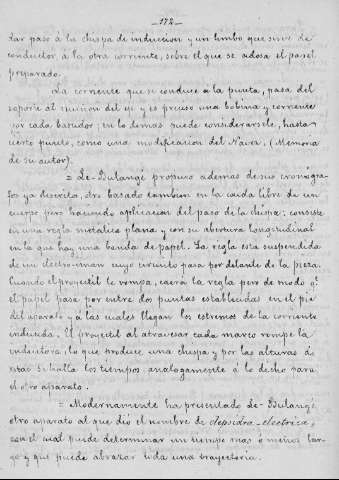 -172-
dar paso á la chispa de induccion y un limbo que sirve de
conductor á la otra corriente, sobre el que se adosa el papel
preparado.
La corriente que se conduce á la punta, pasa del
soporte al muñon del eje y es preciso una bobina y corriente
por cada bastidor; en lo demas puede considerarsele, hasta
cierto punto, como una modificacion del Navez. (Memoria
de su autor).
= Le-Bulangé propuso ademas de sus cronogra-
fos ya descrito, otro basado tambien en la caida libre de un
cuerpo pero haciendo aplicacion del paso de la chispa: consiste
en una regla metalica plana y con su abertura longitudinal
en la que hay una banda de papel. La regla está suspendida
de un electro-iman cuyo circuito pasa por delante de la pieza.
Cuando el proyectil le rompa, caerá la regla pero de modo qe.
el papel pasa por entre dos puntas establecidas en el pie
del aparato y á las cuales llegan los estremos de la corriente
inducida. El proyectil al atravesar cada marco rompe la
inductora, lo que produce una chispa y por las alturas de
estas se halla los tiempos analogamente á lo dicho para
el otro aparato.
= Modernamente ha presentado Le-Bulangé
otro aparato al que dió el nombre de clepsidra-electrica,
con el cual puede determinar un tiempo mas ó menos lar-
go y que puede abrazar toda una trayectoria.